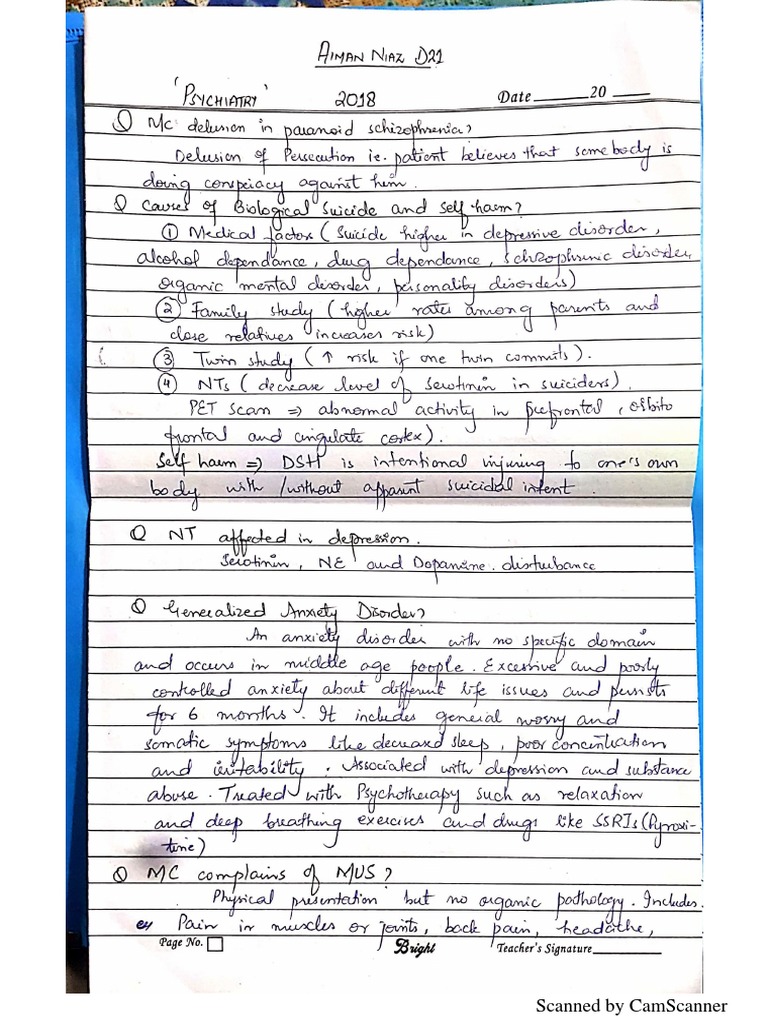 AIMAN NIAZ D21
'PSYCHIATRY' 2018 Date 20
Q Mc delusion in paranoid schizophrenia?
Delusion of Persecution ie. patient believes that somebody is
doing conspiracy against him.
Q Causes of Biological Suicide and self harm?
① Medical factors (Suicide higher in depressive disorder,
alcohol dependance, drug dependance, schizophrenic disorder,
organic mental disorder, personality disorders)
② Family study (higher rates among parents and
close relatives increases risk)
③ Twin study (↑ risk if one twin commits).
④ NTs (decrease level of serotinin in suiciders).
PET scan ⇒ abnormal activity in prefrontal, orbito
frontal and cingulate cortex).
Self harm ⇒ DSH is intentional injuring to one's own
body with /without apparent suicidal intent.
Q NT affected in depression.
Serotinin, NE and Dopamine disturbance
Q Generalized Anxiety Disorder?
An anxiety disorder with no specific domain
and occurs in middle age people. Excessive and poorly
controlled anxiety about different life issues and persists
for 6 months. It includes general worry and
somatic symptoms like decreased sleep, poor concentration
and irritability. Associated with depression and substance
abuse. Treated with Psychotherapy such as relaxation
and deep breathing exercises and drugs like SSRIs (Pyroxi-
tine)
Q MC complains of MUS?
Physical presentation but no organic pathology. Includes.
Pain in muscles or joints, back pain, headache,
Page No. Bright Teacher's Signature
Scanned by CamScanner